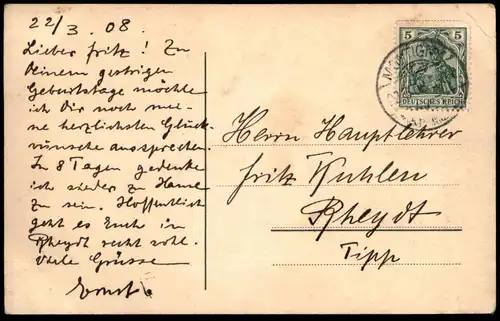 22/3. 08.
Lieber Fritz! Zu
Deinem gestrigen
Geburtstage möchte
ich Dir noch mei-
ne herzlichsten Glück-
wünsche aussprechen.
In 8 Tagen gedenke
ich wieder zu Hause
zu sein. Hoffentlich
geht es Euch in
Rheydt recht wohl.
Viele Grüsse
Ernst.
5 5
DEUTSCHES REICH
Herrn Hauptlehrer
Fritz Kuhlen
Rheydt
Tipp